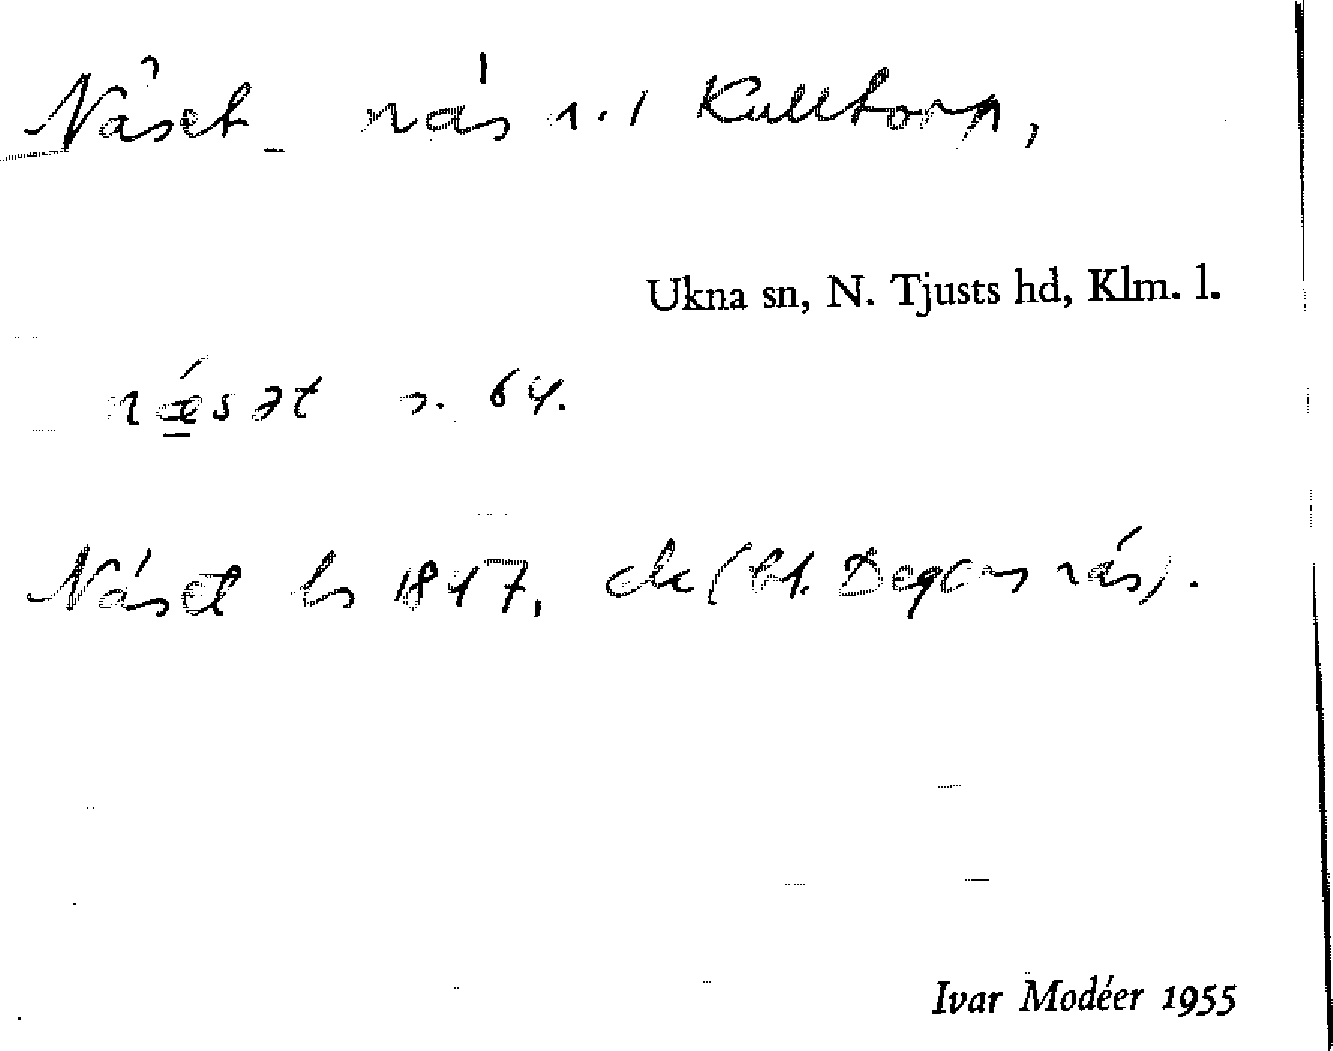 Näset näs n. i Kulltorp,
Ukna sn, N. Tjusts hd, Klm. l.
næsət s. 64.
Näset ls 1847, ek (bl. Degernäs).
Ivar Modéer 1955